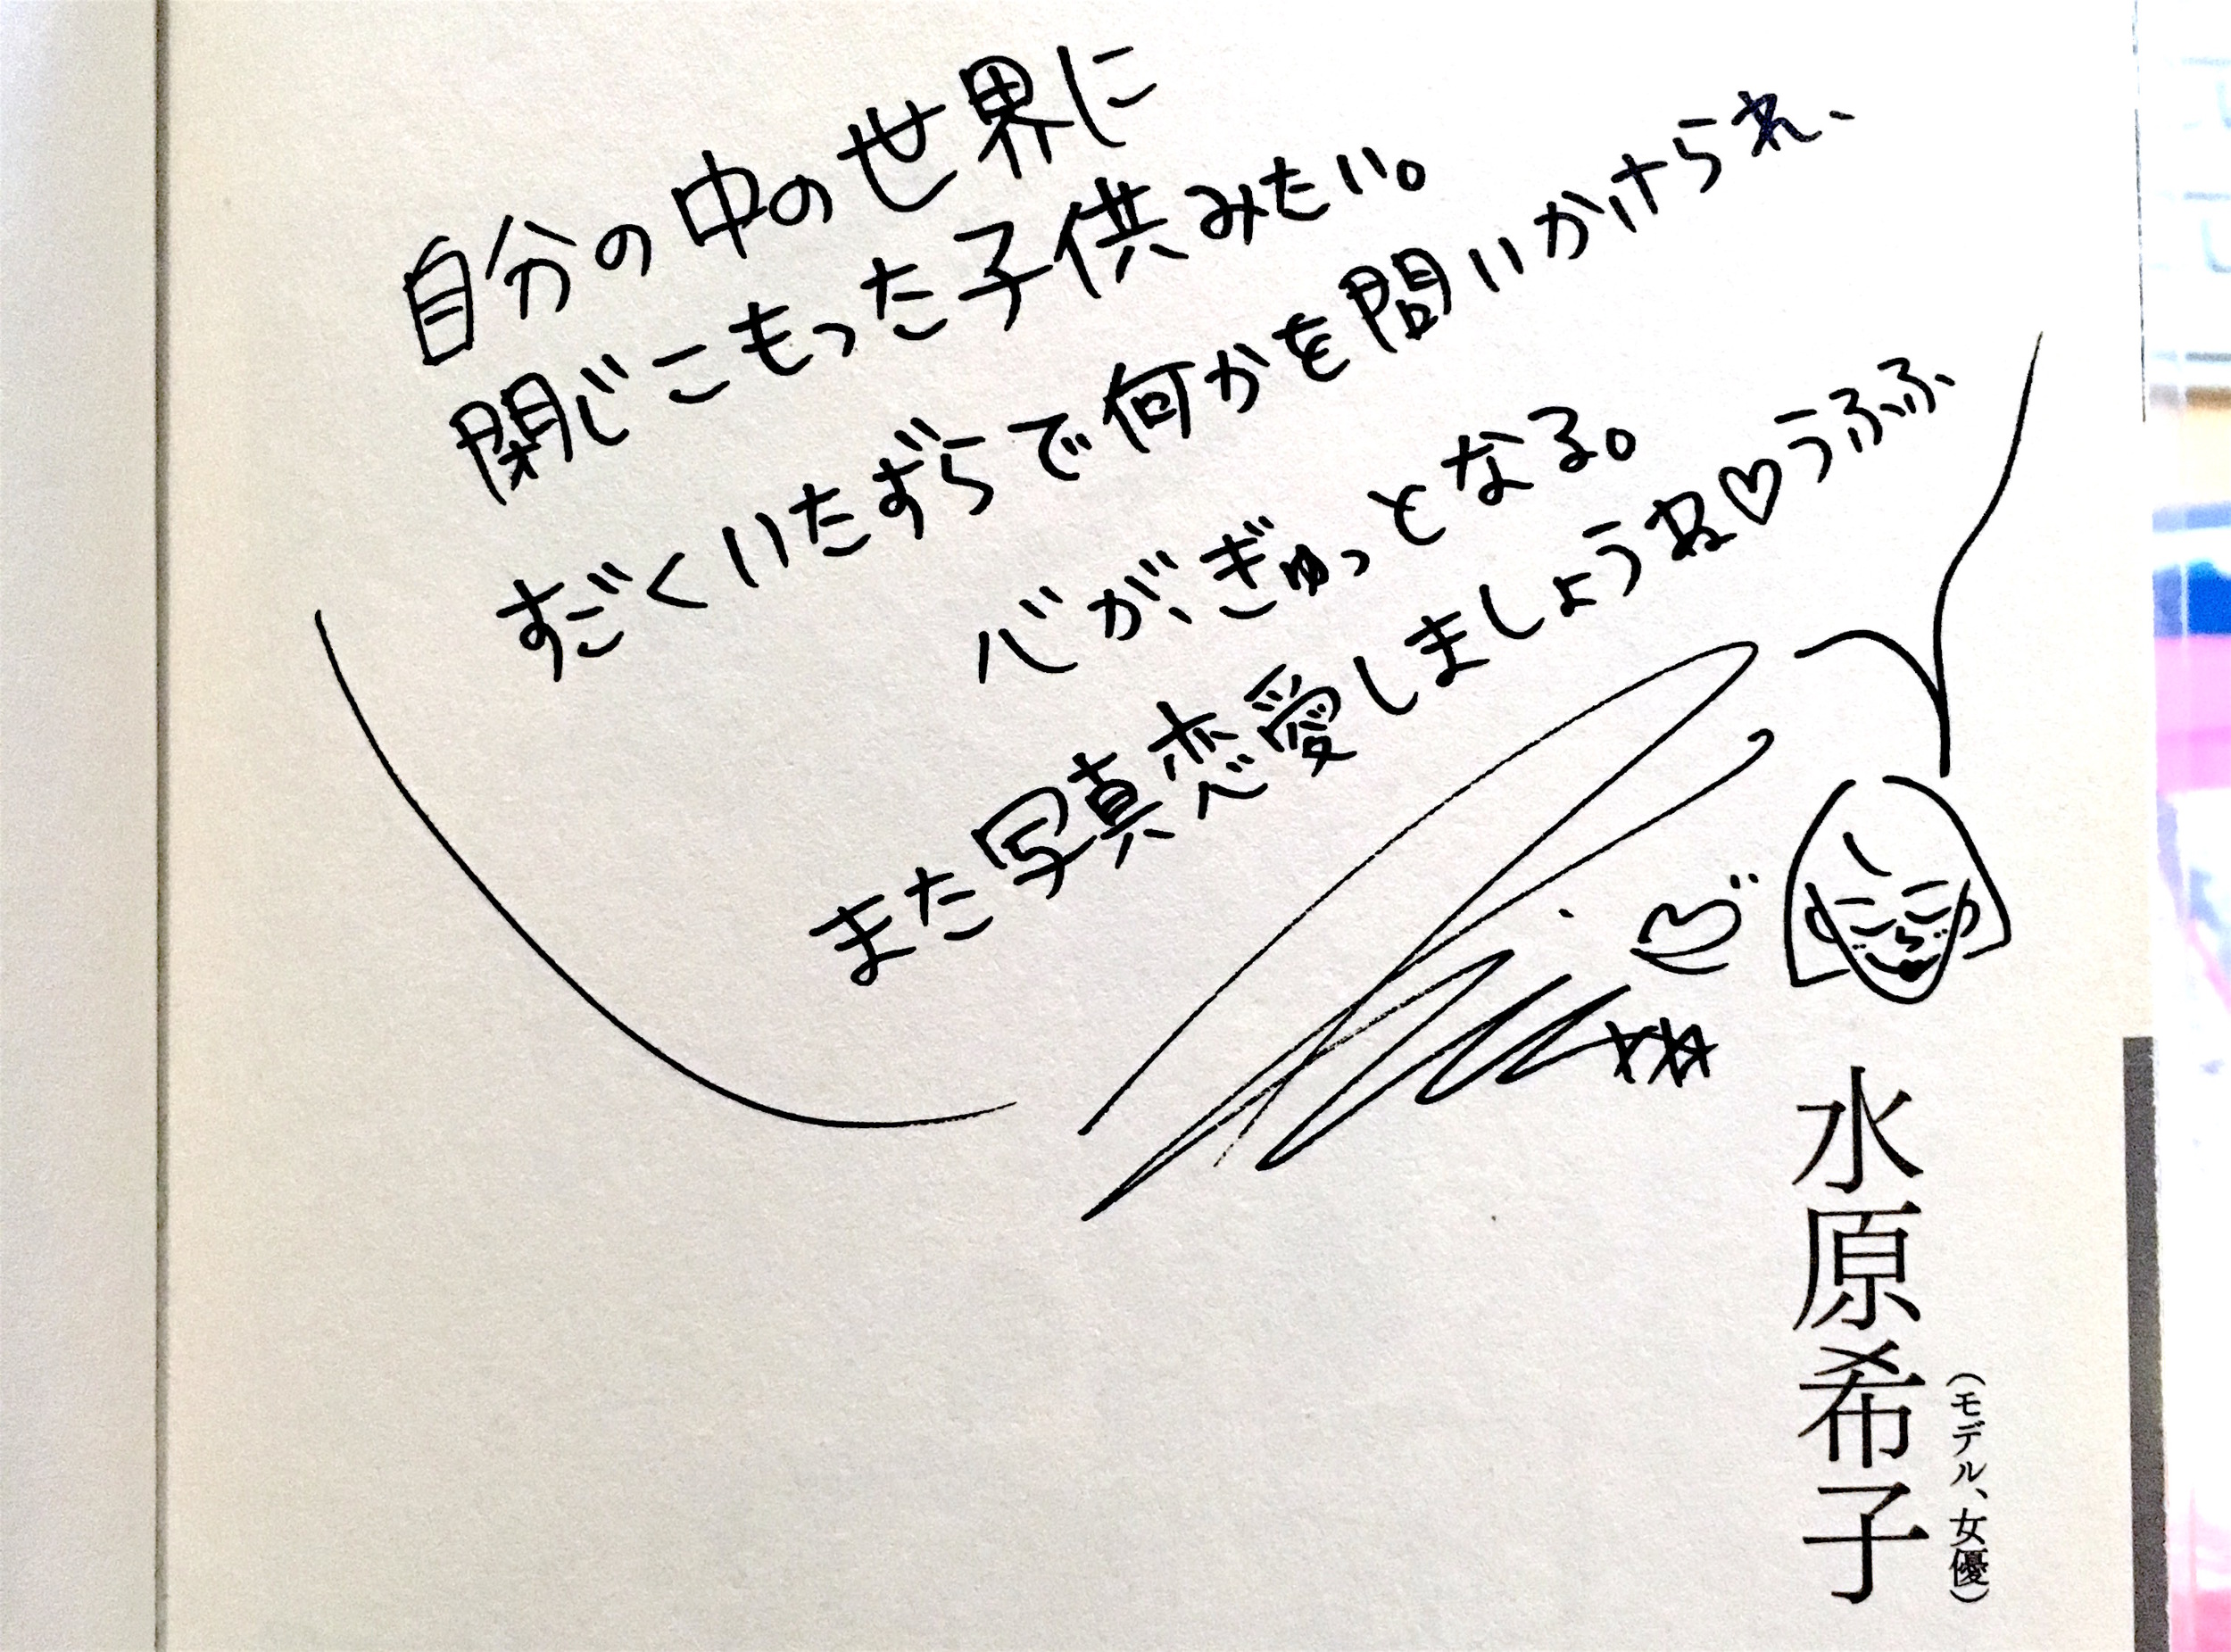 自分の中の世界に
閉じこもった子供みたい。
すごくいたずらで何かを問いかけられ、
心が、ぎゅっとなる。
また写真恋愛しましょうね♡うふふ
水原希子
(モデル、女優)